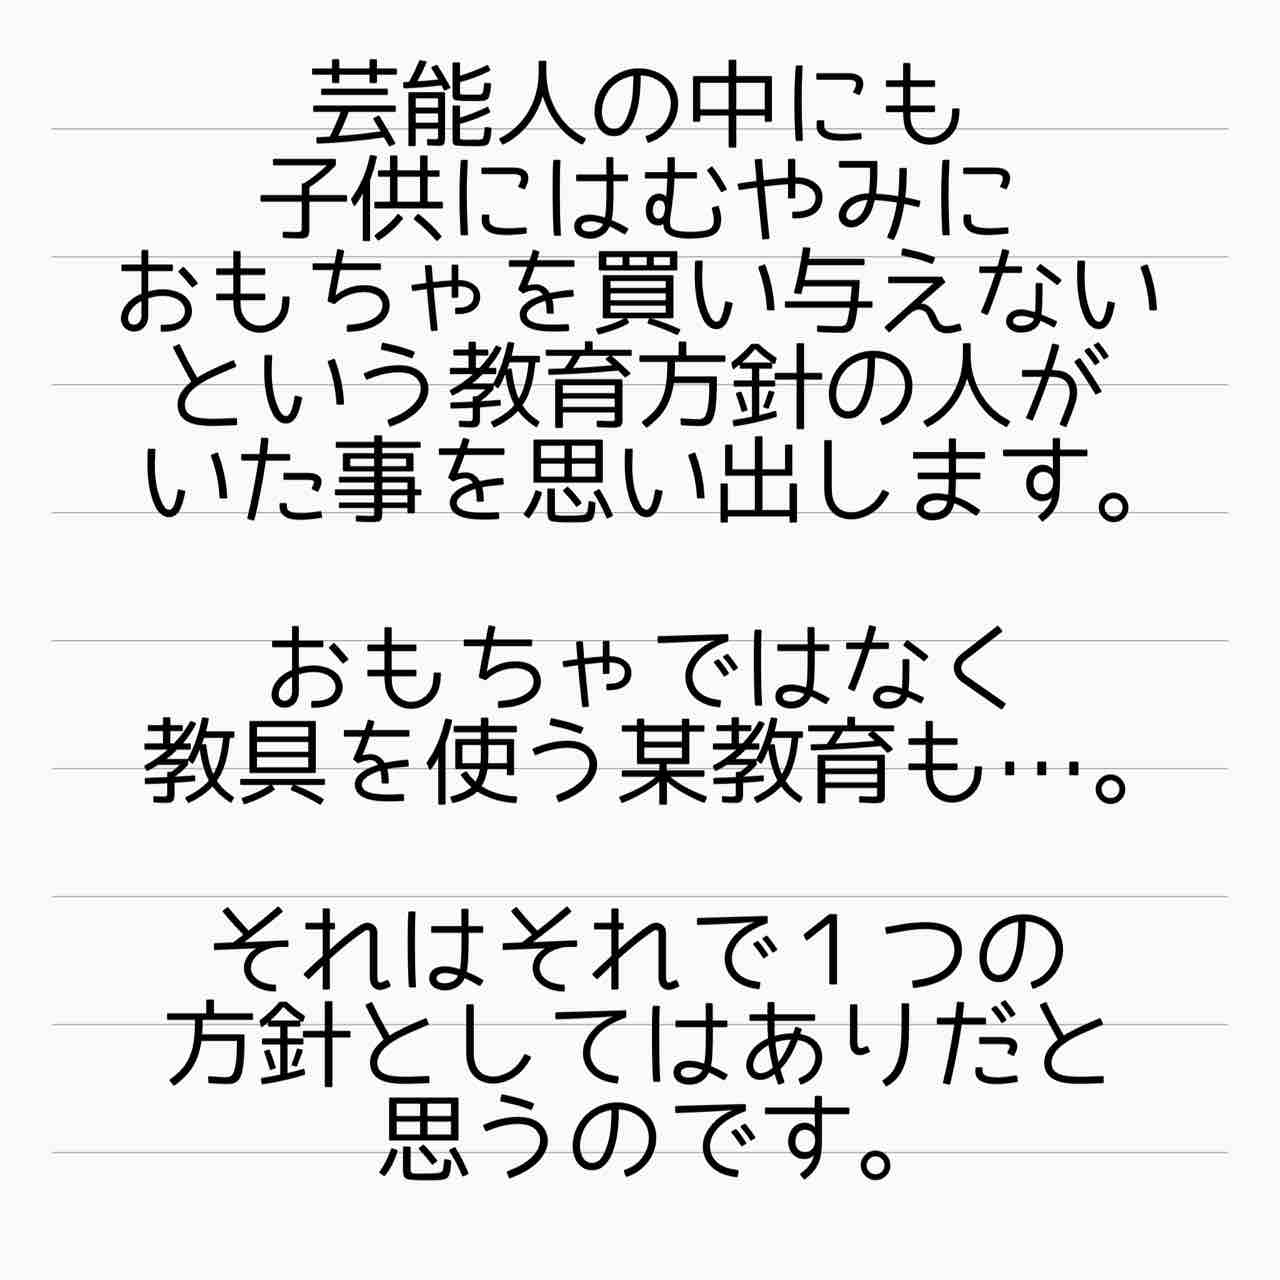 芸能人の中にも
子供にはむやみに
おもちゃを買い与えない
という教育方針の人が
いた事を思い出します。
おもちゃではなく
教具を使う某教育も…。
それはそれで１つの
方針としてはありだと
思うのです。